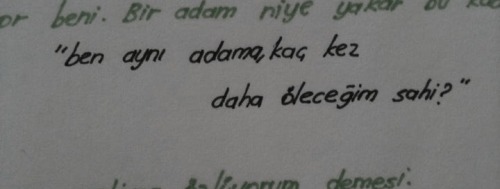 or beni. Bir adam niye yakar bu ka
"ben aynı adama, kaç kez
daha öleceğim sahi?"
demesi.